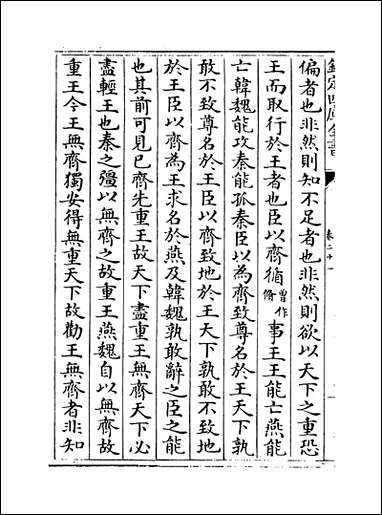 欽定四庫全書
卷二十一
偏者也非然則知不足者也非然則欲以天下之重恐
王而取行於王者也臣以齊循曾作脩事王王能亡燕能
亡韓魏能攻秦能孤秦臣以為齊致尊名於王天下孰
敢不致尊名於王臣以齊致地於王天下孰敢不致地
於王臣以齊為王求名於燕及韓魏孰敢辭之臣之能
也其前可見已齊先重王故天下盡重王無齊天下必
盡輕王也秦之彊以無齊之故重王燕魏自以無齊故
重王今王無齊獨安得無重天下故勸王無齊者非知